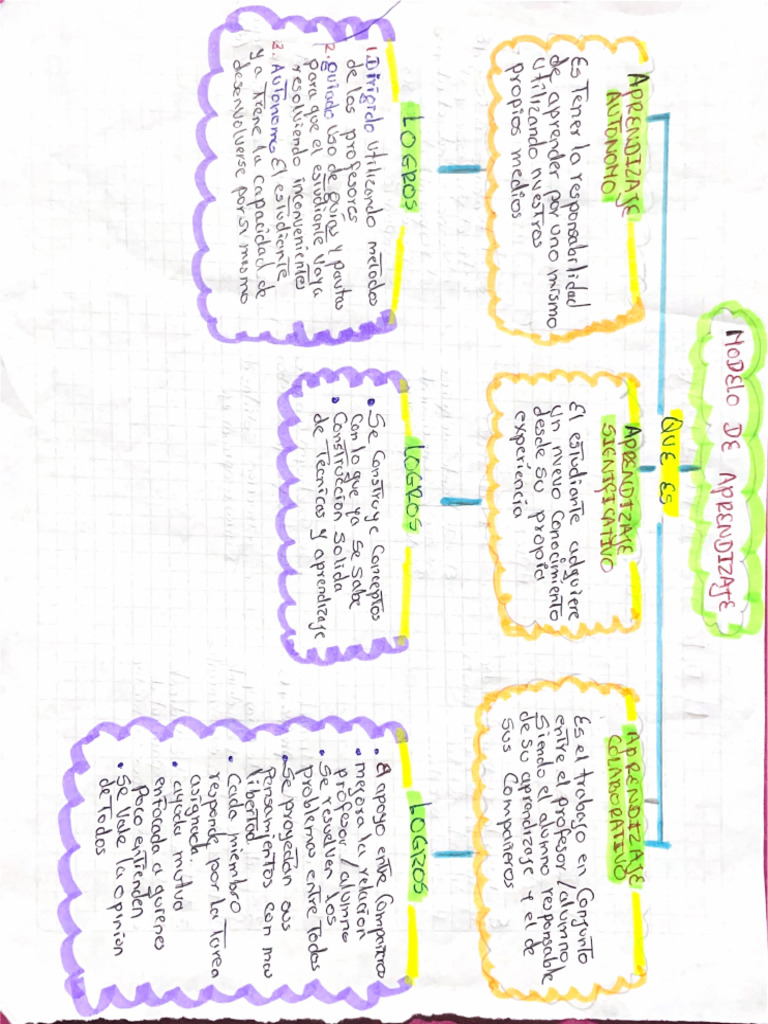 MODELO DE APRENDIZAJE
QUE ES
APRENDIZAJE
AUTONOMO
Es Tener la responsabilidad
de aprender por uno mismo
utilizando nuestros
propios medios
LOGROS
1. Dirigido utilizando metodos
de los profesores
2. guiado uso de guias y pautas
para que el estudiante vaya
resolviendo inconvenientes
3. Autonomo El estudiante
ya tiene la capacidad de
desenvolverse por si mismo
APRENDIZAJE
SIGNIFICATIVO
El estudiante adquiere
un nuevo conocimiento
desde su propia
experiencia
LOGROS
• Se construye conceptos
con lo que ya se sabe
• Construccion solida
de Tecnicas y aprendizaje
APRENDIZAJE
COLABORATIVO
Es el trabajo en conjunto
entre el profesor/alumno
siendo el alumno responsable
de su aprendizaje y el de
sus compañeros
LOGROS
• El apoyo entre compañeros
• mejora la relacion
profesor/alumno
• Se resuelven los
problemas entre todos
• Se proyectan sus
pensamientos con mas
libertad
• Cada miembro
responde por la tarea
asignada.
• ayuda mutua
enfocada a quienes
poco entienden
• Se vale la opinion
de todos